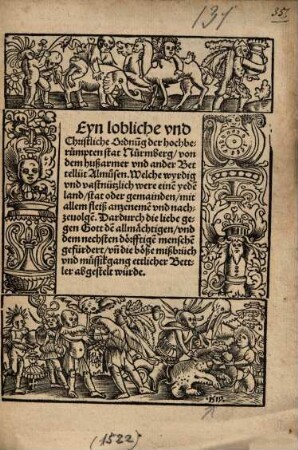 131
55.
Eyn lobliche vnd
Christliche Ordnūg der hochbe⸗
rümpten stat Nürmberg / von
dem hußarmer vnd ander Bet
telliit Almůsen. Welche wyrdig
vnd vastnützlich were einē yedē
land / stat oder gemainden / mit
allem fleiß anzenemē vnd nach⸗
zeuolgē. Dardurch die liebe ge⸗
gen Gott dē allmächtigen / vnd
dem nechsten dörfftige menschē
gefürdert / vñ die böße mißbüch
vnd müssikgang etlicher Bett⸗
ler abgestelt würde.
(1522)